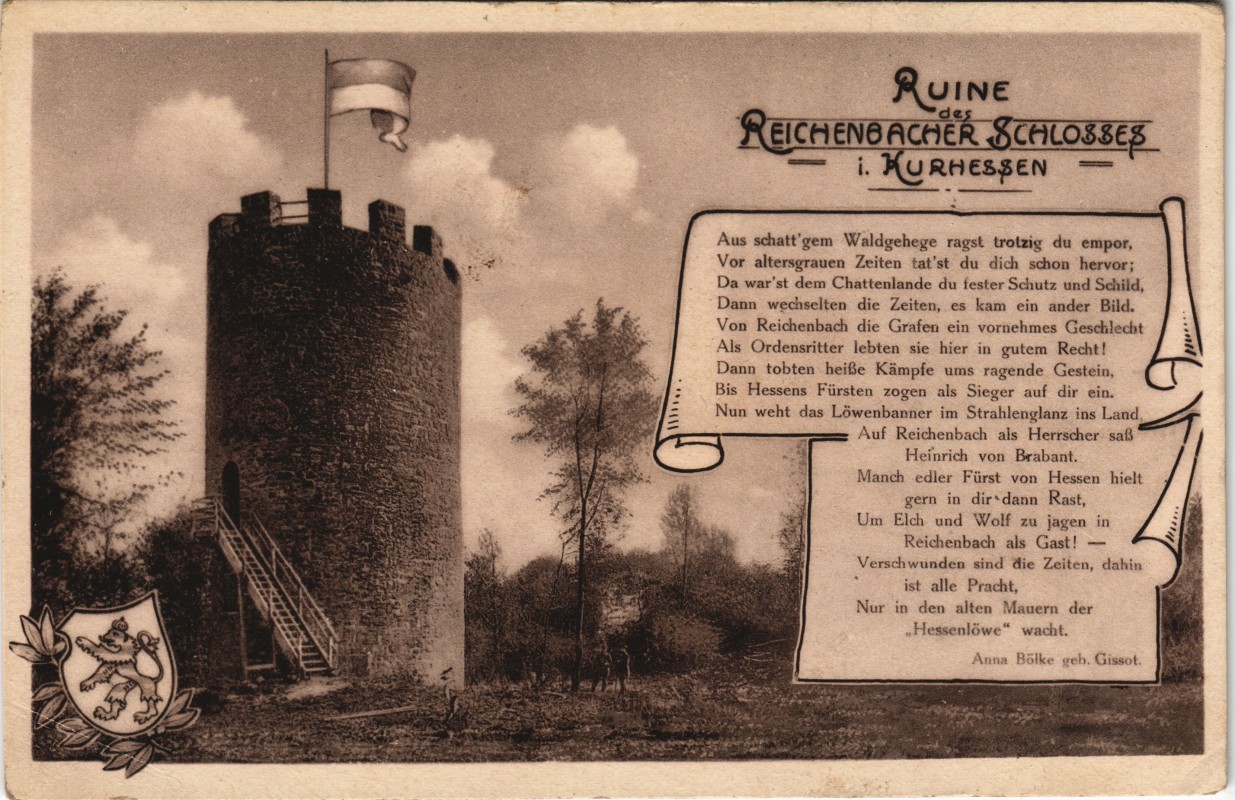 Ruine
des
Reichenbacher Schlosses
i. Kurhessen
Aus schatt'gem Waldgehege ragst trotzig du empor,
Vor altersgrauen Zeiten tat'st du dich schon hervor;
Da war'st dem Chattenlande du fester Schutz und Schild,
Dann wechselten die Zeiten, es kam ein ander Bild.
Von Reichenbach die Grafen ein vornehmes Geschlecht
Als Ordensritter lebten sie hier in gutem Recht!
Dann tobten heiße Kämpfe ums ragende Gestein,
Bis Hessens Fürsten zogen als Sieger auf dir ein.
Nun weht das Löwenbanner im Strahlenglanz ins Land,
Auf Reichenbach als Herrscher saß
Heinrich von Brabant.
Manch edler Fürst von Hessen hielt
gern in dir dann Rast,
Um Elch und Wolf zu jagen in
Reichenbach als Gast! —
Verschwunden sind die Zeiten, dahin
ist alle Pracht,
Nur in den alten Mauern der
„Hessenlöwe“ wacht.
Anna Bölke geb. Gissot.